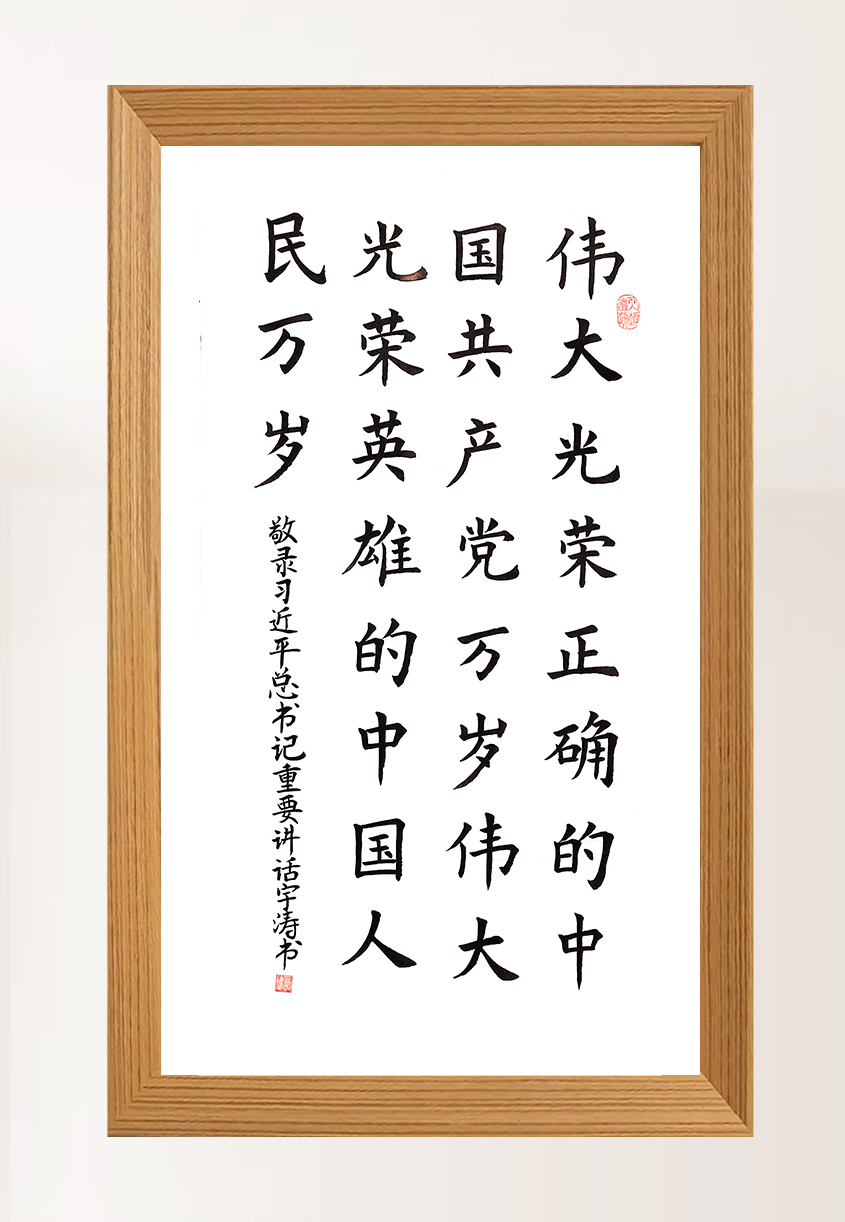 伟大光荣正确的中
国共产党万岁伟大
光荣英雄的中国人
民万岁
敬录习近平总书记重要讲话宇涛书